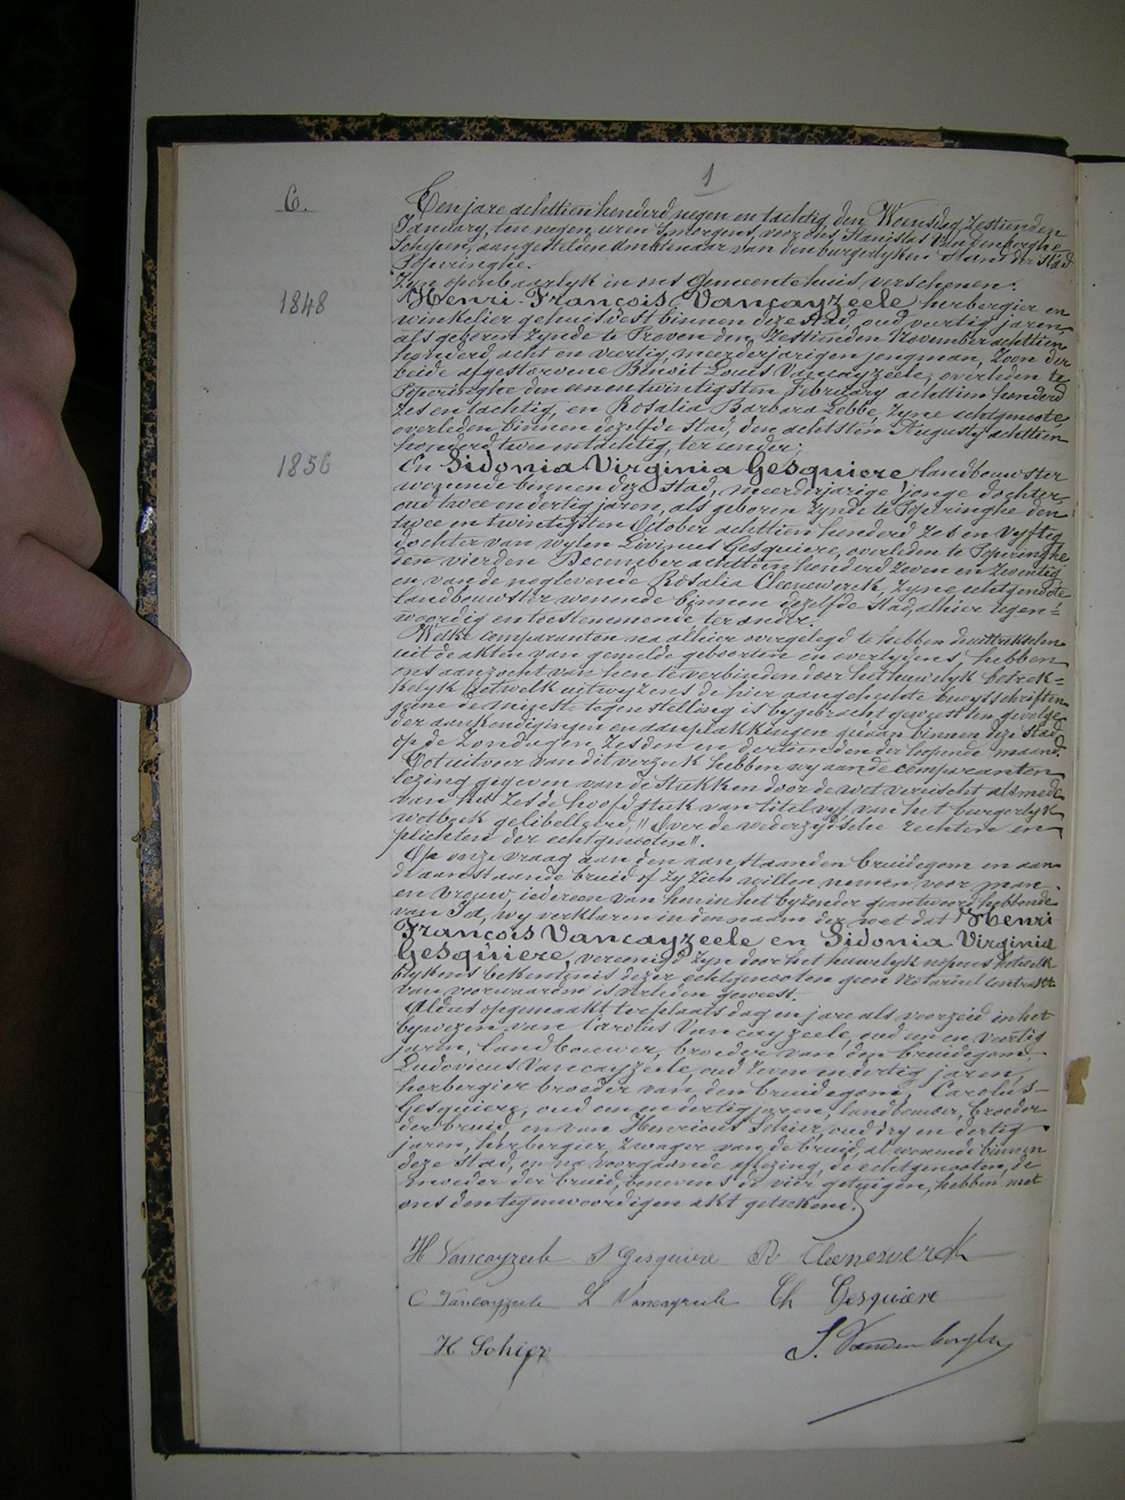 1
6.
Ten jare achttien honderd negen en tachtig, den Woensdag, zestienden
January, ten negen uren 's morgens, voor ons Stanislas Vandenberghe
Schepen, aangestelden ambtenaar van den burgerlyken stand der stad
Poperinghe.
Zyn openbaarlyk in ons Gemeentehuis verschenen:
1848
Henri-François Vancayzeele, herbergier en
winkelier gehuisvest binnen deze stad, oud veertig jaren,
als geboren zynde te Proven den zestienden November achttien
honderd acht en veertig, meerderjarigen jongman, zoon der
beide afgestorvene Benoit Louis Vancayzeele, overleden te
Poperinghe den een en twintigsten February achttien honderd
zes en tachtig, en Rosalia Barbara Lebbe, zyne echtgenoote,
overleden binnen dezelfde stad, den achtsten Augusty achttien
honderd twee en tachtig, ter eender;
1856
En Sidonia Virginia Gesquiere, landbouwster
wonende binnen deze stad, meerderjarige jonge dochter,
oud twee en dertig jaren, als geboren zynde te Poperinghe den
twee en twintigsten October achttien honderd zes en vyftig
dochter van wylen Livinus Gesquiere, overleden te Poperinghe
den vierden December achttien honderd zeven en zeventig
en van de nog levende Rosalia Cleenewerck, zyne echtgenoote
landbouwster wonende binnen dezelfde stad, alhier tegen=
woordig en toestemmende ter ander.
Welke comparanten na alhier overgelegd te hebben de uittrekselen
uit de akten van gemelde geboorten en overlydens, hebben
ons aanzocht van hen te verbinden door het huwelyk betrek=
kelyk hetwelk uitwyzens de hier aangehechte bewysschriften
geene de minste tegenstelling is bygebracht geweest ten gevolge
der aankondigingen en aanplakkingen gedaan binnen deze stad
op de Zondagen, zesden en dertienden der loopende maand.
Tot uitvoer van dit verzoek hebben wy aan de comparanten
lezing gegeven van de stukken door de wet vereischt alsmede
van het zesde hoofdstuk van titel vyf, van het burgerlyk
wetboek gelibelleerd, "Over de wederzydsche rechten en
plichten der echtgenooten".
Op onze vraag aan den aanstaanden bruidegom en aan
de aanstaande bruid of zy zich willen nemen voor man
en vrouw, iedereen van hen in het byzonder geantwoord hebbende
van Ja, wy verklaren in den naam der wet dat Henri
François Vancayzeele en Sidonia Virginia
Gesquiere, vereenigd zyn door het huwelyk nopens hetwelk
blykens bekentenis dezer echtgenooten geen notarieel contrakt
van voorwaarden is verleden geweest.
Aldus opgemaakt ter plaats dag en jare als voorzeid in het
bywezen van Carolus Vancayzeele, oud een en veertig
jaren, landbouwer, broeder van den bruidegom,
Ludovicus Vancayzeele, oud zeven en dertig jaren,
herbergier broeder van den bruidegom, Carolus
Gesquiere, oud een en dertig jaren, landbouwer, broeder
der bruid, en van Henricus Sohier, oud dry en dertig
jaren, herbergier, zwager van de bruid, al wonende binnen
deze stad, en na voorgaande aflezing, de echtgenooten, de
moeder der bruid, benevens de vier getuigen, hebben met
ons den tegenwoordigen akt geteekend.
H Vancayzeele S Gesquiere R Cleenewerck
C Vancayzeele L Vancayzeele Ch Gesquiere
H Sohier S. Vandenberghe